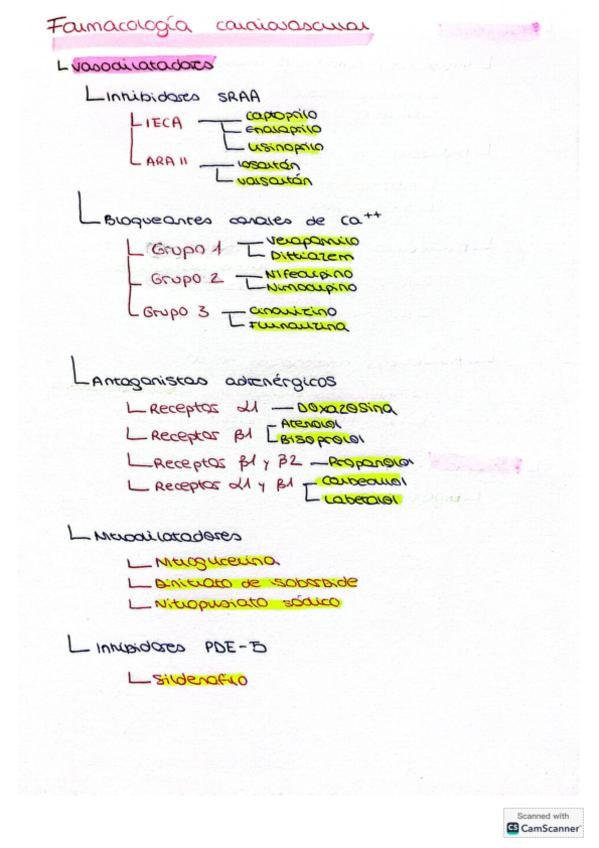 Farmacología cardiovascular
Vasodilatadores
Inhibidores SRAA
IECA
captoprilo
Enalaprilo
Lisinoprilo
ARA II
losartán
valsartán
Bloqueantes canales de Ca++
Grupo 1
Verapamilo
Diltiazem
Grupo 2
Nifedipino
Nimodipino
Grupo 3
Cinarizina
Flunarizina
Antagonistas adrenérgicos
Receptos α1 — Doxazosina
Receptos β1
Atenolol
Bisoprolol
Receptos β1 y β2 — Propanolol
Receptos α1 y β1
Carbedilol
Labetalol
Nitrodilatadores
Nitroglicerina
Dinitrato de isosorbide
Nitroprusiato sódico
Inhibidores PDE-5
Sildenafilo
Scanned with
CS CamScanner